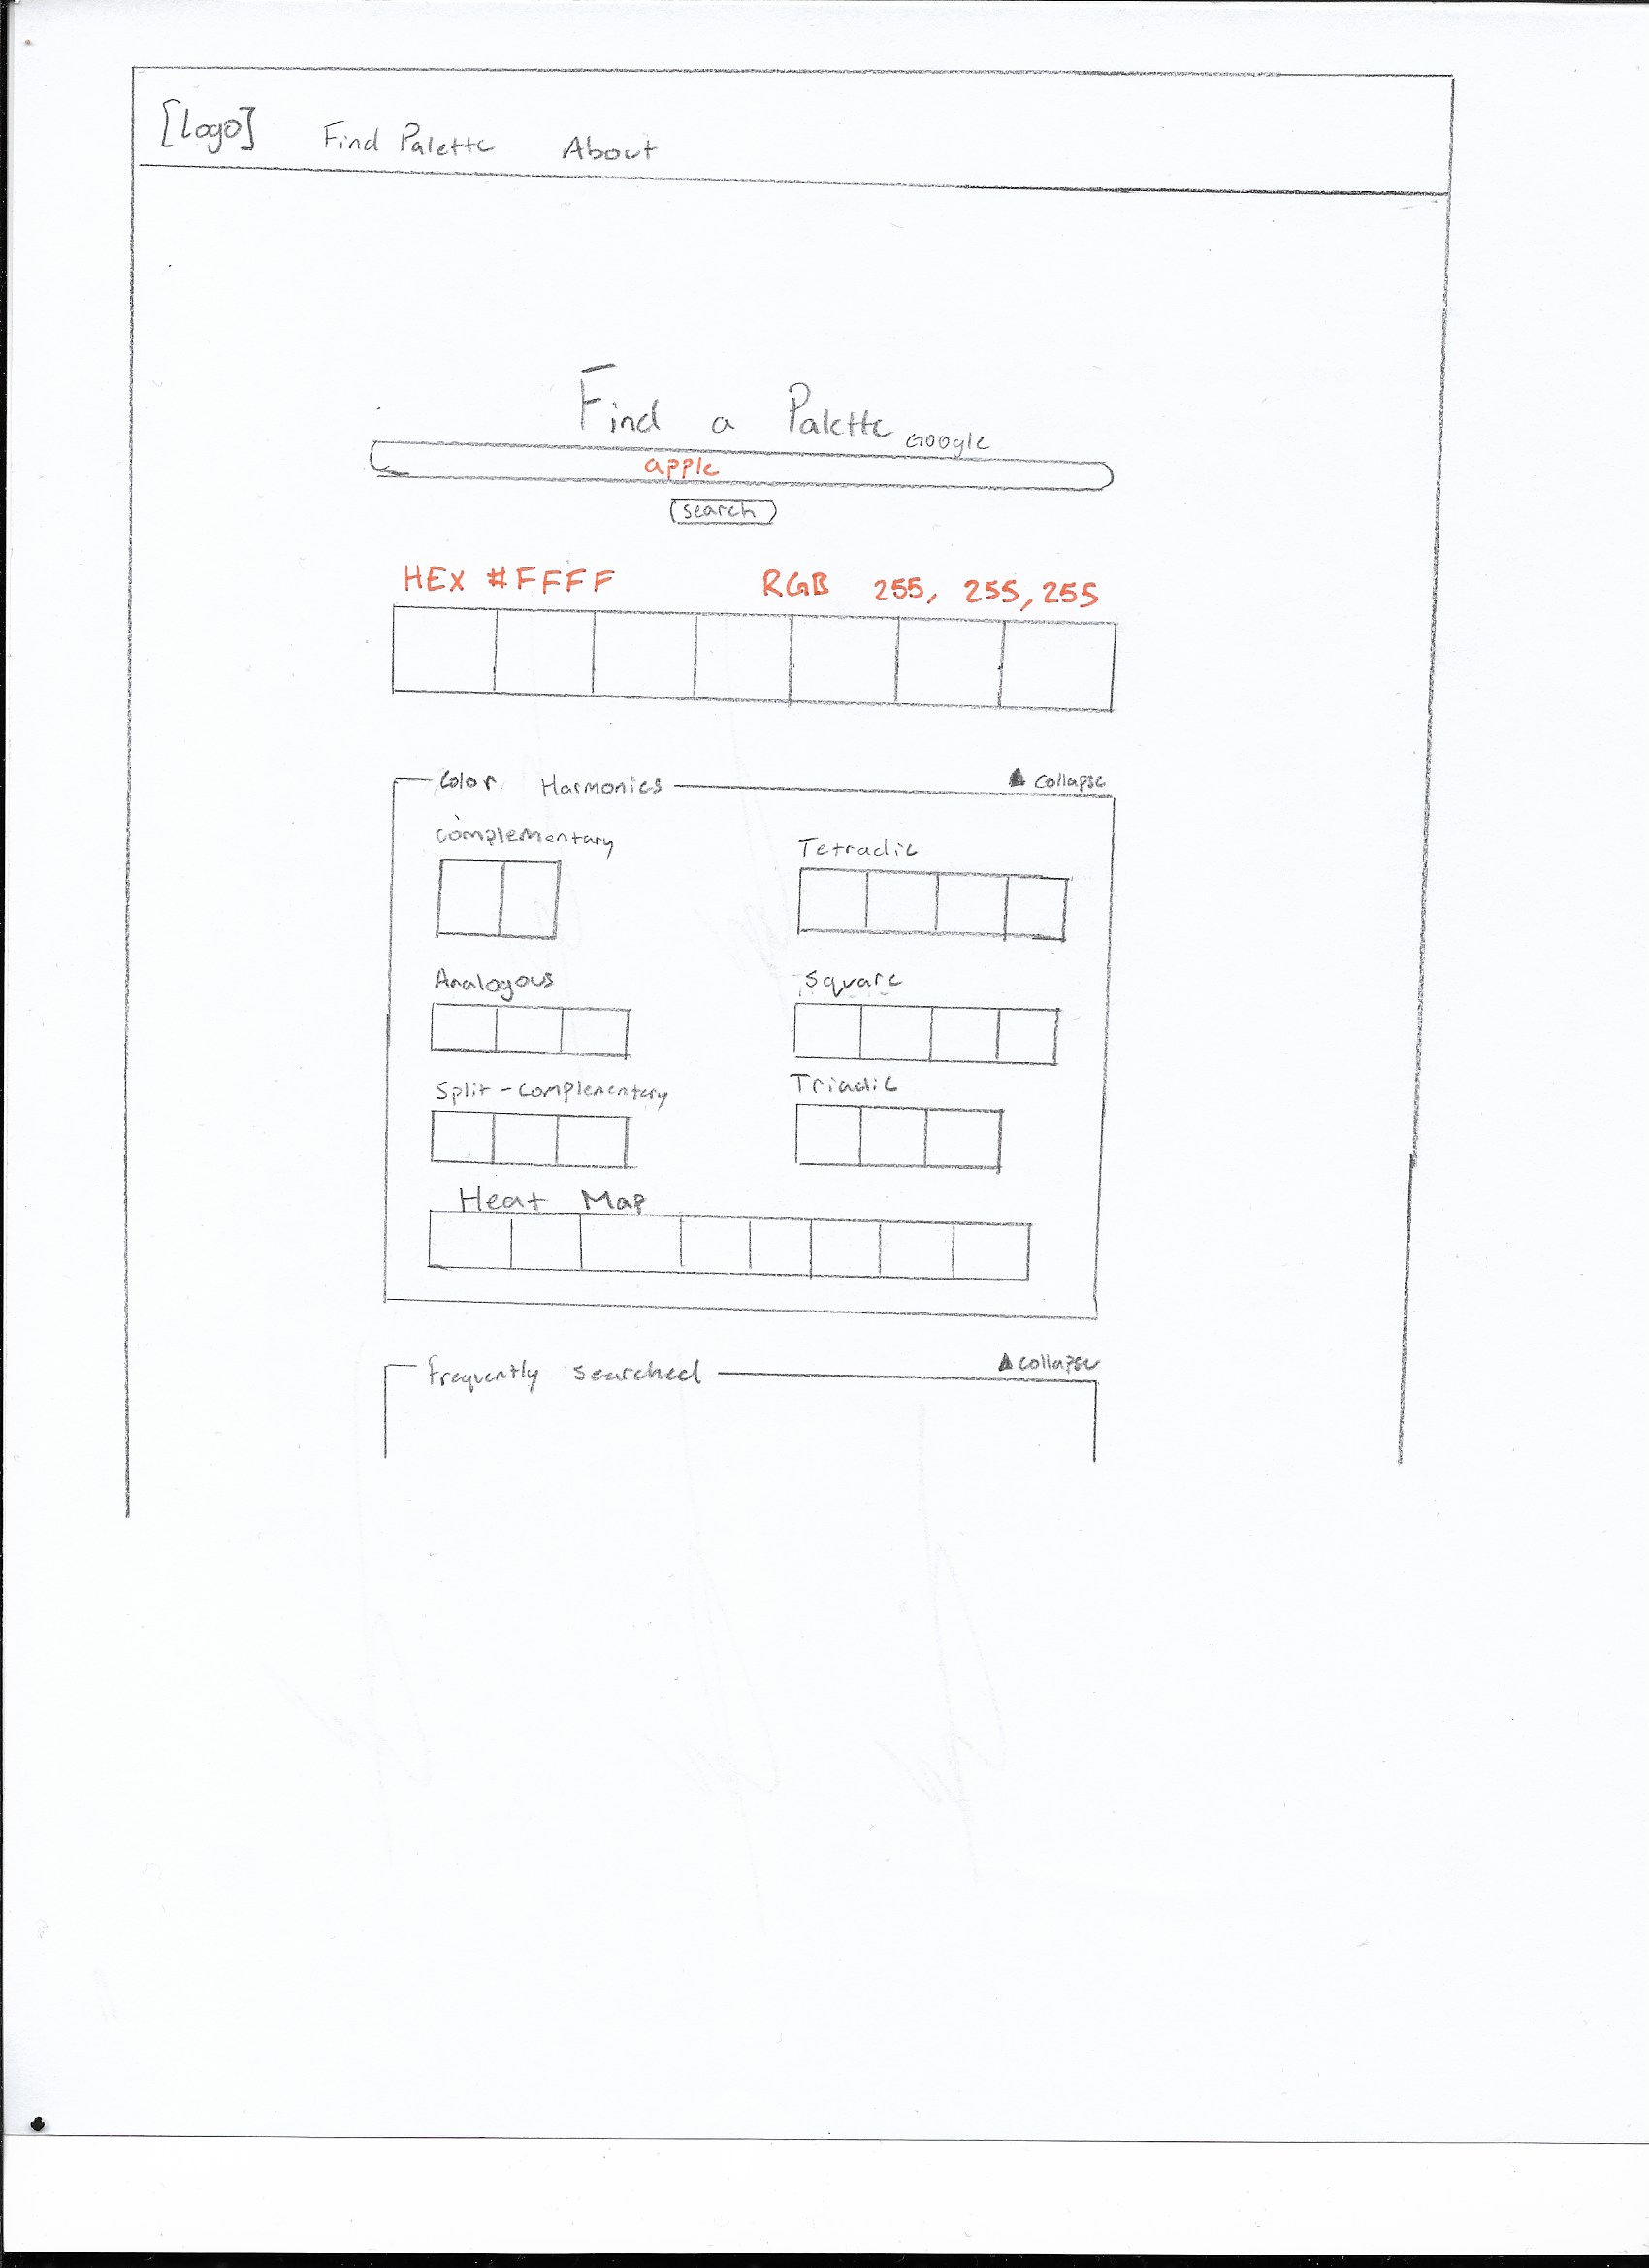 [logo] Find Palette About
Find a Palette Google
apple
search
HEX #FFFF RGB 255, 255, 255
Color Harmonics ▲ collapse
complementary Tetradic
Analogous Square
Split-complementary Triadic
Heat Map
frequently searched ▲ collapse